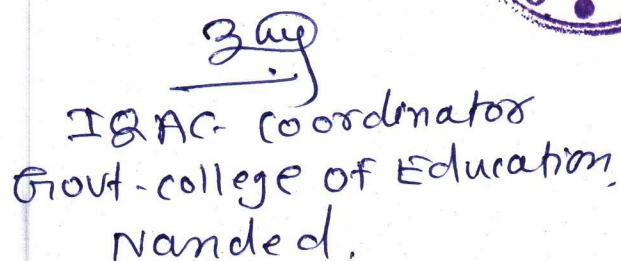 IQAC- coordinator
Govt-college of Education,
Nanded.